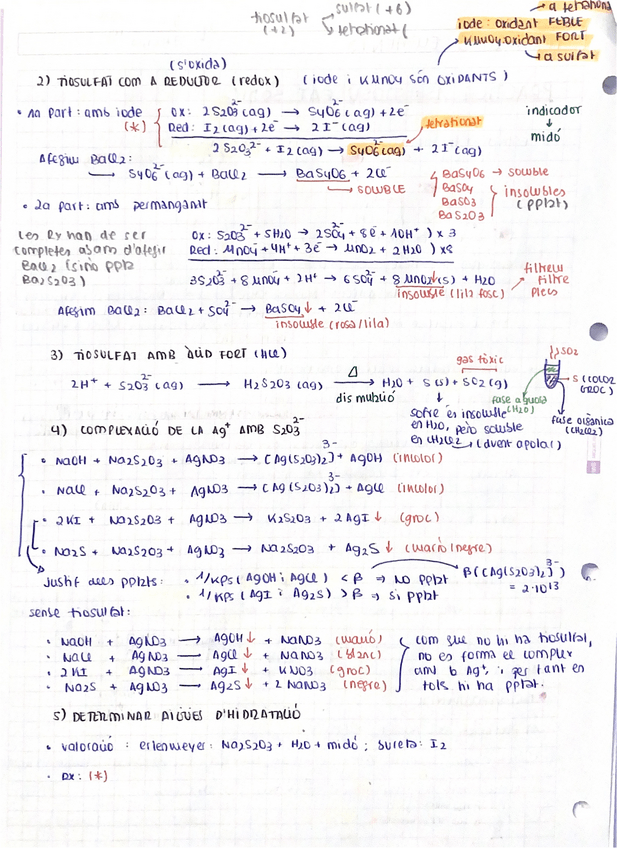 tiosulfat (+2)
sulfat (+6)
tetrationat (
→ a tetrationa
iode: oxidant FEBLE
KMnO4: oxidant FORT
→ a sulfat
(s'oxida)
2) TIOSULFAT COM A REDUCTOR (redox) (iode i KMnO4 són OXIDANTS)
• 1a part: amb iode (*)
Ox: 2S2O3²⁻ (aq) → S4O6²⁻ (aq) + 2e⁻
Red: I2 (aq) + 2e⁻ → 2I⁻ (aq)
tetrationat
2S2O3²⁻ + I2 (aq) → S4O6²⁻ (aq) + 2I⁻ (aq)
indicador
↓
midó
Afegim BaCl2:
→ S4O6²⁻ (aq) + BaCl2 → BaS4O6 + 2Cl⁻
→ SOLUBLE
BaS4O6 → soluble
BaSO4
BaSO3
BaS2O3
insolubles (pptat)
• 2a part: amb permanganat
Les Rx han de ser completes abans d'afegir BaCl2 (sinó pptà BaS2O3)
Ox: S2O3²⁻ + 5H2O → 2SO4²⁻ + 8e⁻ + 10H⁺) x 3
Red: MnO4⁻ + 4H⁺ + 3e⁻ → MnO2 + 2H2O) x8
3S2O3²⁻ + 8MnO4⁻ + 2H⁺ → 6SO4²⁻ + 8MnO2↓(s) + H2O
insoluble (lila fosc)
filtrem
filtre
plecs
Afegim BaCl2: BaCl2 + SO4²⁻ → BaSO4↓ + 2Cl⁻
insoluble (rosa/lila)
3) TIOSULFAT AMB ÀCID FORT (HCl)
gas tòxic
2H⁺ + S2O3²⁻ (aq) → H2S2O3 (aq) →Δ H2O + S(s) + SO2(g)
dismutació
sofre és insoluble en H2O, però soluble en CH2Cl2 → (dvent apolar)
SO2
S (COLOR GROC)
fase aquosa (H2O)
fase orgànica (CH2Cl2)
4) COMPLEXACIÓ DE LA Ag⁺ AMB S2O3²⁻
• NaOH + Na2S2O3 + AgNO3 → (Ag(S2O3)2)³⁻ + AgOH (incolor)
• NaCl + Na2S2O3 + AgNO3 → (Ag(S2O3)2)³⁻ + AgCl (incolor)
• 2KI + Na2S2O3 + AgNO3 → K2S2O3 + 2AgI↓ (groc)
• Na2S + Na2S2O3 + AgNO3 → Na2S2O3 + Ag2S↓ (marró/negre)
Justif dels pptats: • 1/Kps (AgOH i AgCl) < β ⇒ NO pptat
• 1/Kps (AgI i Ag2S) > β ⇒ Sí pptat
β((Ag(S2O3)2)³⁻) = 2·10¹³
sense tiosulfat:
• NaOH + AgNO3 → AgOH↓ + NaNO3 (marró)
• NaCl + AgNO3 → AgCl↓ + NaNO3 (blanc)
• 2KI + AgNO3 → AgI↓ + KNO3 (groc)
• Na2S + AgNO3 → Ag2S↓ + 2NaNO3 (negre)
com que no hi ha tiosulfat,
no es forma el complex
amb Ag⁺, i per tant en
tots hi ha pptat.
5) DETERMINAR AIGÜES D'HIDRATACIÓ
• valoració: erlenmeyer: Na2S2O3 + H2O + midó; bureta: I2
• Ox: (*)